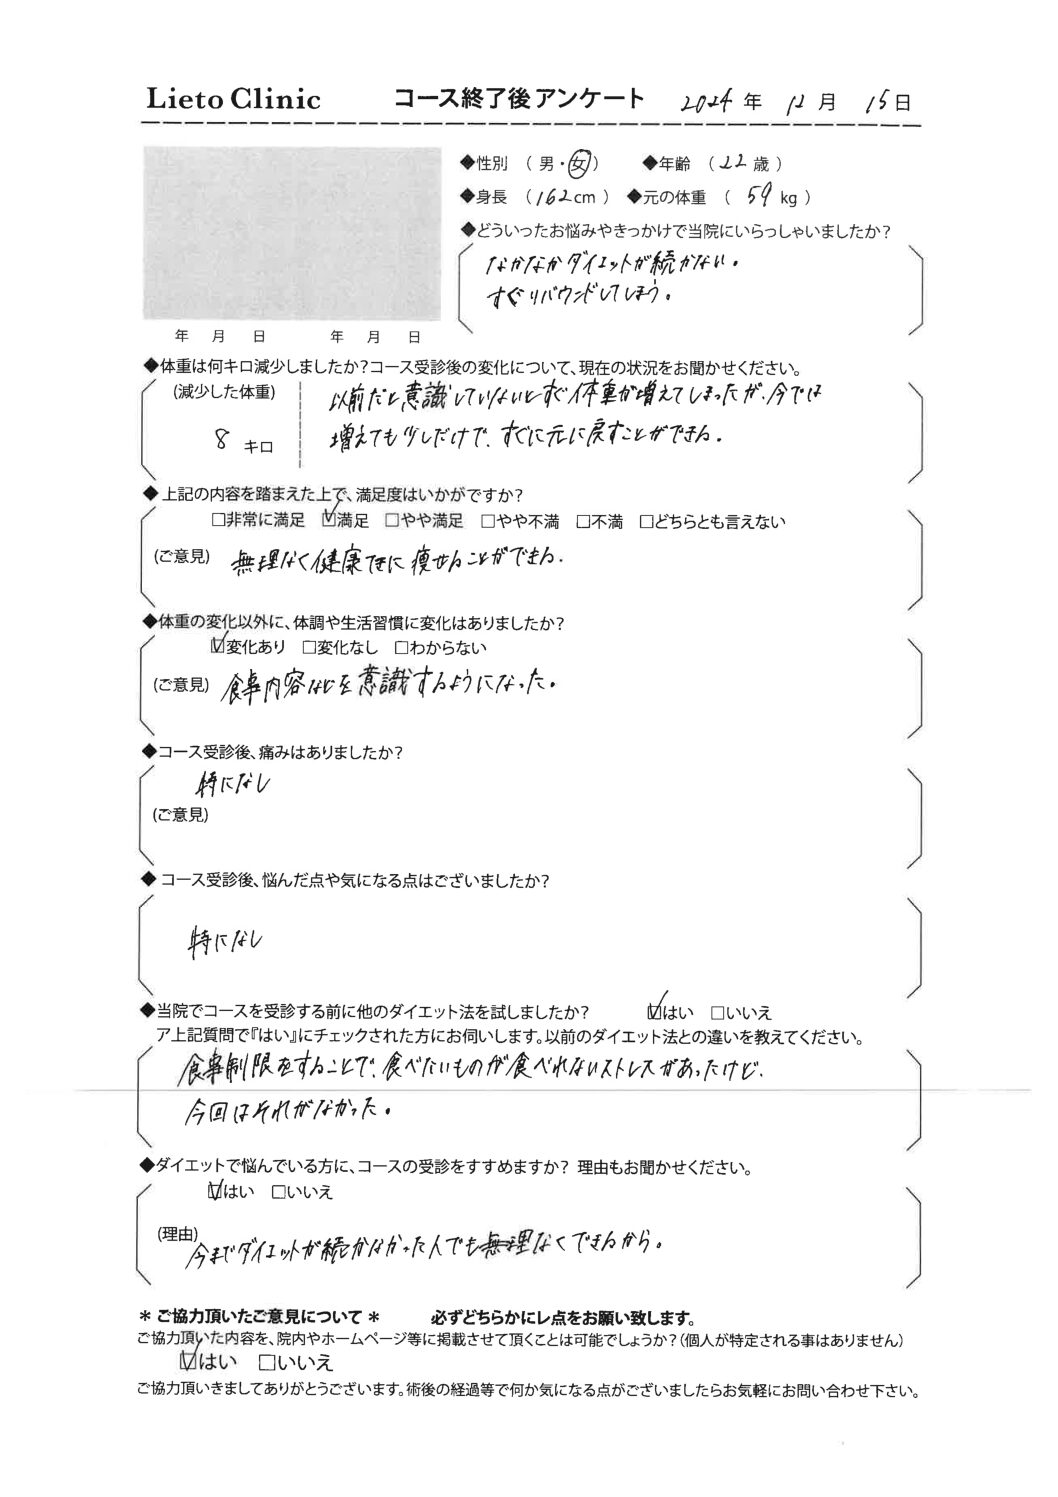 Lieto Clinic コース終了後アンケート 2024年 12月 15日
◆性別 (男・女) ◆年齢 (22歳)
◆身長 (162cm) ◆元の体重 (59kg)
◆どういったお悩みやきっかけで当院にいらっしゃいましたか?
なかなかダイエットが続かない。
すぐリバウンドしてしまう。
年 月 日 年 月 日
◆体重は何キロ減少しましたか?コース受診後の変化について、現在の状況をお聞かせください。
(減少した体重)
8 キロ
以前だと意識していないとすぐ体重が増えてしまったが、今では
増えても少しだけで、すぐに元に戻すことができる。
◆上記の内容を踏まえた上で、満足度はいかがですか?
□非常に満足 ☑満足 □やや満足 □やや不満 □不満 □どちらとも言えない
(ご意見) 無理なく健康てきに痩せることができる.
◆体重の変化以外に、体調や生活習慣に変化はありましたか?
☑変化あり □変化なし □わからない
(ご意見) 食事内容などを意識するようになった。
◆コース受診後、痛みはありましたか?
特になし
(ご意見)
◆コース受診後、悩んだ点や気になる点はございましたか?
特になし
◆当院でコースを受診する前に他のダイエット法を試しましたか? ☑はい □いいえ
ア上記質問で『はい』にチェックされた方にお伺いします。以前のダイエット法との違いを教えてください。
食事制限をすることで、食べたいものが食べれないストレスがあったけど、
今回はそれがなかった。
◆ダイエットで悩んでいる方に、コースの受診をすすめますか? 理由もお聞かせください。
☑はい □いいえ
(理由) 今までダイエットが続かなかった人でも無理なくできるから。
* ご協力頂いたご意見について * 必ずどちらかにレ点をお願い致します。
ご協力頂いた内容を、院内やホームページ等に掲載させて頂くことは可能でしょうか?(個人が特定される事はありません)
☑はい □いいえ
ご協力頂いきましてありがとうございます。術後の経過等で何か気になる点がございましたらお気軽にお問い合わせ下さい。